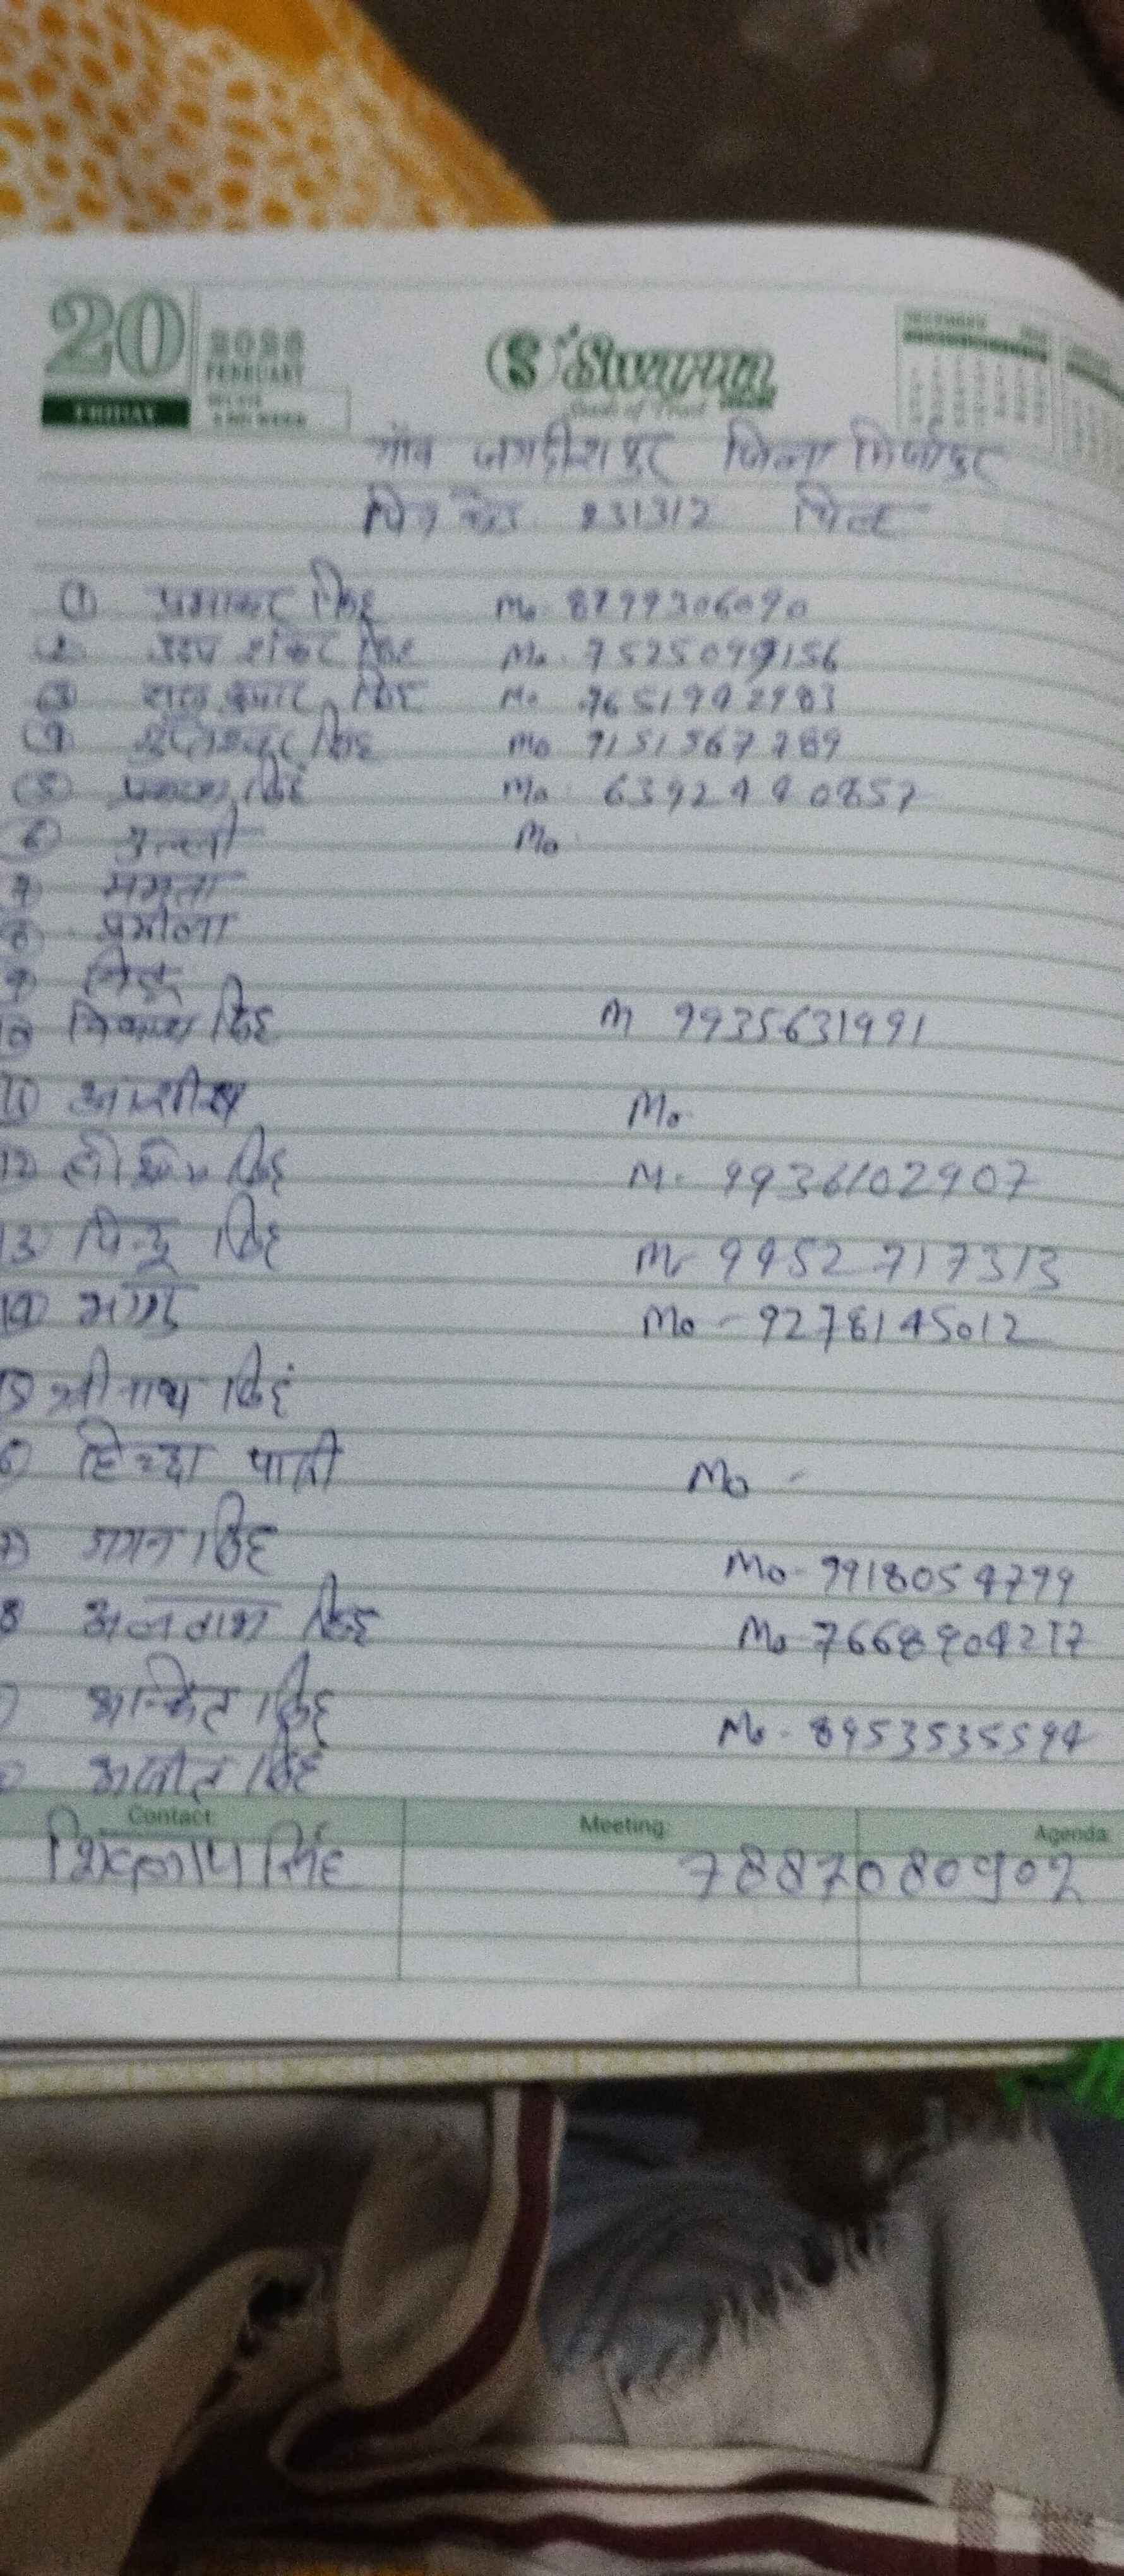 20
FEBRUARY
FRIDAY
Swarum
गाँव जगदीशपुर जिला मिर्जापुर
पिन कोड 231312
① प्रभाकर सिंह Mo 8799306090
2 उदय शंकर सिंह Mo. 7525099156
③ राज कुमार सिंह Mo 7651942983
④ सिंह Mo 9151567789
⑤ प्रकाश सिंह Mo 6392490857
⑥ मुन्नी Mo
7 ममता
8 प्रमीला
9
10 विकाश सिंह M 9935631991
11 आशीष Mo
12 सिंह M. 9936102907
13 पिन्टू सिंह M 9452717313
14 Mo - 9278145012
15 श्रीनाथ सिंह
Mo -
गगन सिंह Mo- 9918054799
सिंह Mo 7668904217
अंकित सिंह Mo - 8953535594
अजीत सिंह
Contact Meeting: Agenda
सिंह 7887080902